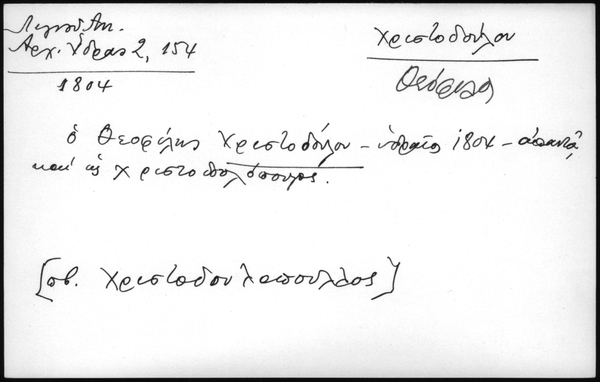 Λιγνού Αντ.
Αρχ. Ύδρας 2, 154
1804
Χριστοδούλου
Θεόφιλος
ὁ Θεοφίλης Χριστοδούλου – ὑδραῖος 1804 – ἀπαντᾷ
καί ὡς Χριστοδουλόπουλος.
[πβ. Χριστοδουλόπουλος]